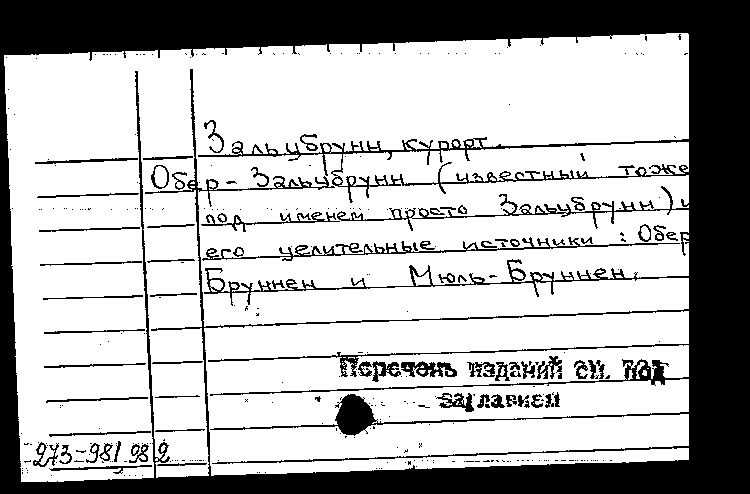 Зальцбрунн, курорт.
Обер-Зальцбрунн (известный тоже
под именем просто Зальцбрунн) и
его целительные источники: Обер
Бруннен и Мюль-Бруннен.
Перечень изданий см. под
заглавием
273-981 982